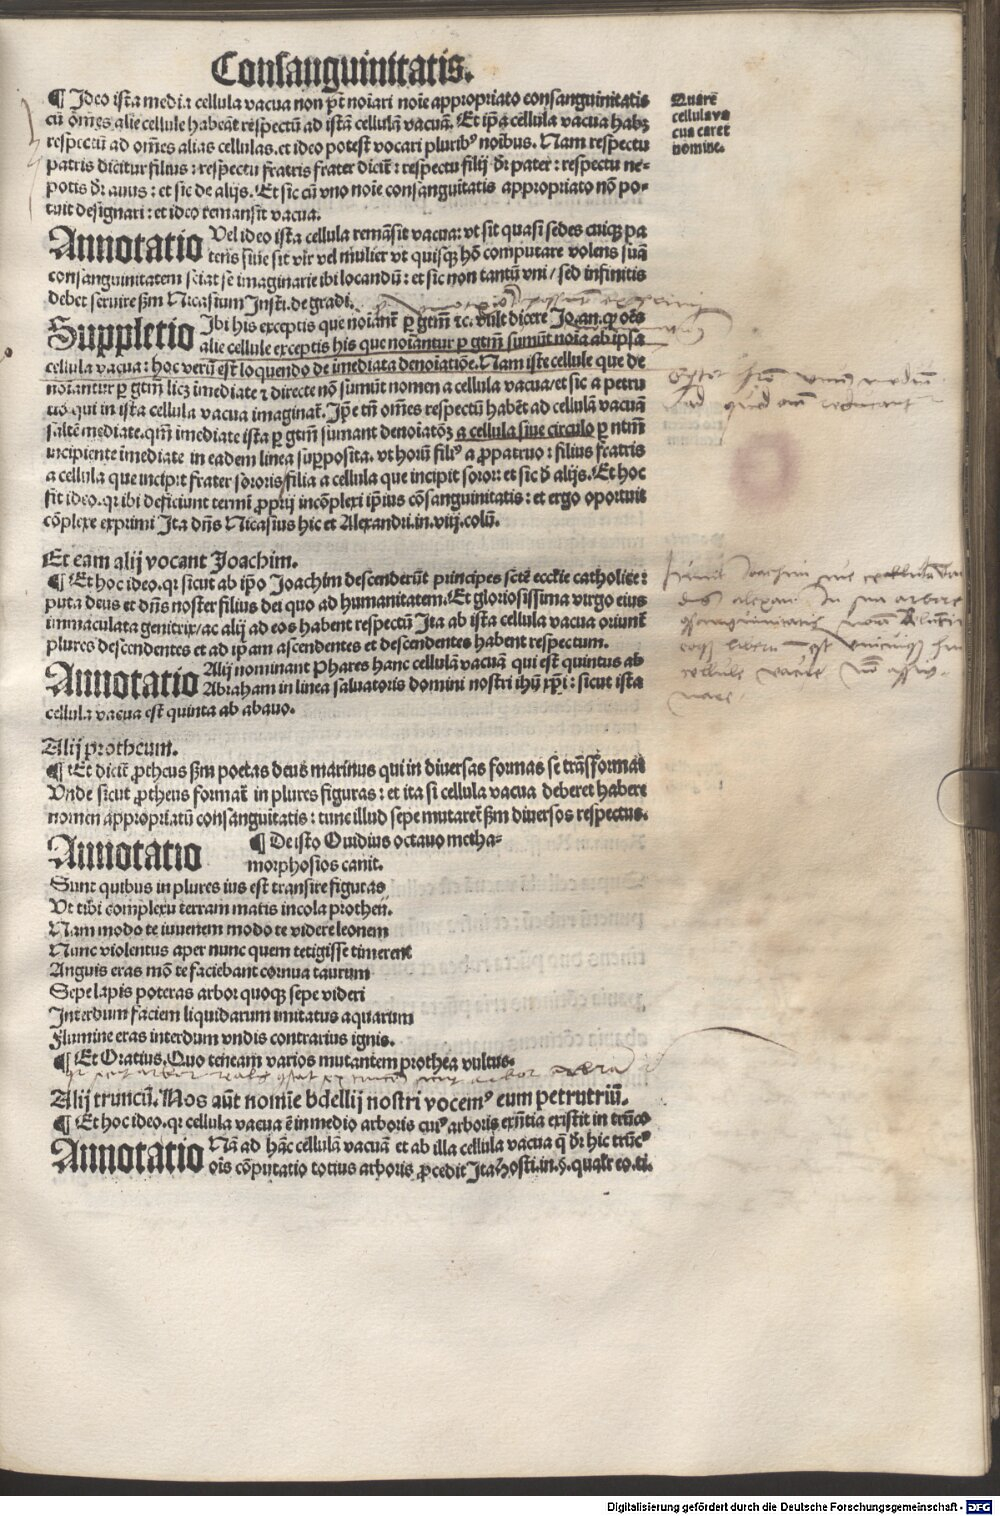 Consanguinitatis.
¶ Ideo ista media cellula vacua non pōt noīari noīe appropriato consanguinitatis
cū om̄es alie cellule habeāt respectū ad istā cellulā vacuā. Et ip̄a cellula vacua habꝫ
respectū ad om̄es alias cellulas. et ideo potest vocari pluribꝰ noībus. Nam respectu
patris dicitur filius: respectu fratris frater dicit᷑: respectu filij dr̄ pater: respectu ne-
potis dr̄ auus: et sic de alijs. Et sic cū vno noīe consanguītatis appropriato nō po-
tuit designari: et ideo remansit vacua.
Quarē
cellula va
cua caret
nomine.
Annotatio Vel ideo ista cellula remāsit vacua: vt sit quasi sedes cuiꝗꝫ pa
tens siue sit vir vel mulier vt quisqꝫ hō computare volens suā
consanguinitatem sciat se imaginarie ibi locandū: et sic non tantū vni / sed infinitis
debet seruire ẜm Nicasium Insti. de gradi.
Suppletio Ibi his exceptis que noīant᷑ ꝑ gt̄m ⁊c. vult dicere Jo. an. ꝙ oēs
alie cellule exceptis his que noīantur ꝑ gt̄m sumūt noīa ab ipsa
cellula vacua: hoc verū est loquendo de imediata denoīatiōe. Nam iste cellule que de
noīantur ꝑ gt̄m licꝫ imediate ⁊ directe nō sumūt nomen a cellula vacua / et sic a petru
cio qui in ista cellula vacua imaginat᷑. Ip̄e tn̄ om̄es respectū habēt ad cellulā vacuā
saltē mediate. qm̄ imediate ista ꝑ gt̄m sumant denoīatōꝫ a cellula siue circulo ꝑ ntm̄
incipiente imediate in eadem linea supposita. vt horū filiꝰ a ꝓpatruo: filius fratris
a cellula que incipit frater sororis / filia a cellula que incipit soror: et sic d̄ alijs. Et hoc
fit ideo. qꝛ ibi deficiunt termī ꝓprij incōplexi ip̄ius cōsanguinitatis: et ergo oportuit
cōplexe exprimi Ita dn̄s Nicasius hic et Alexandri. in. viij. colū.
Et eam alij vocant Joachim.
¶ Et hoc ideo. qꝛ sicut ab ip̄o Joachim descenderūt principes scte eccl̄ie catholice:
puta deus et dn̄s noster filius dei quo ad humanitatem. Et gloriosissima virgo eius
immaculata genitrix / ac alij ad eos habent respectū Ita ab ista cellula vacua oriunt᷑
plures descendentes et ad ip̄am ascendentes et descendentes habent respectum.
Annotatio Alij nominant Phares hanc cellulā vacuā qui est quintus ab
Abraham in linea saluatoris domini nostri ihū xp̄i: sicut ista
cellula vacua est quinta ab abauo.
Alij protheum.
¶ Et dicit᷑ ꝓtheus ẜm poetas deus marinus qui in diuersas formas se trāsformat
Vnde sicut ꝓtheus format᷑ in plures figuras: et ita si cellula vacua deberet habere
nomen appropriatū consanguītatis: tunc illud sepe mutaret᷑ ẜm diuersos respectus.
Annotatio ¶ De isto Ouidius octauo metha-
morphosios canit.
Sunt quibus in plures ius est transire figuras
Vt tibi complexu terram matis incola prothen̄.
Nam modo te iuuenem modo te videre leonem
Nunc violentus aper nunc quem tetigisse timerent
Anguis eras mō te faciebant cornua taurum
Sepe lapis poteras arbor quoqꝫ sepe videri
Interdum faciem liquidarum imitatus aquarum
Flumine eras interdum vndis contrarius ignis.
¶ Et Oratius. Quo teneam varios mutantem prothea vultus.
Alij truncū. Nos aūt nomīe bdellij nostri vocemꝰ eum petrutiū.
¶ Et hoc ideo. qꝛ cellula vacua ē in medio arboris cuiꝰ arboris exn̄tia existit in trūco
Annotatio Nā ad hāc cellulā vacuā et ab illa cellula vacua q̄ dr̄ hic trūcꝰ
oīs cōputatio totius arboris ꝓcedit Ita Hosti. in. §. qualr̄ eo. ti.
Digitalisierung gefördert durch die Deutsche Forschungsgemeinschaft - DFG